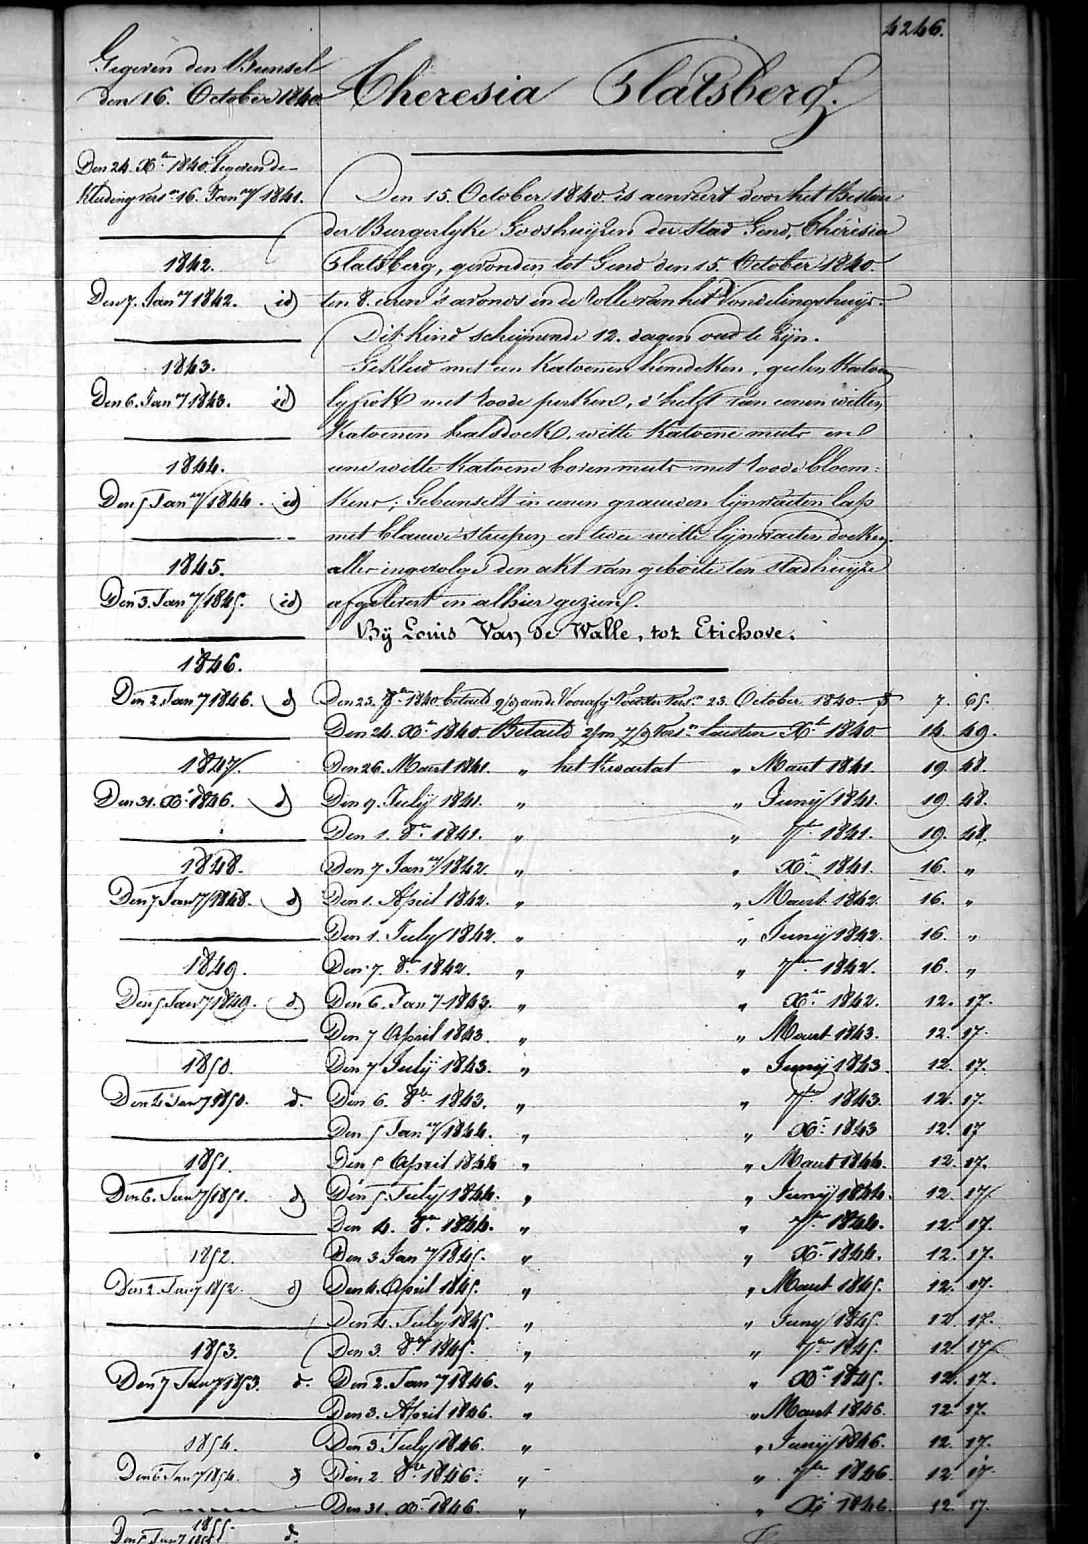 4246.
Gegeven den Bunsel
den 16. October 1840
Theresia Flatsberg.
Den 24. Xb 1840 Gegeven de
Kleding vers 16. Jan 1841.
Den 15. October 1840 is aenveert door het Bestier
der Burgerlyke Godshuyzen der stad Gend, Thérèsia
Flatsberg, gevonden tot Gend den 15. October 1840.
ten 8. uren 's avonds in de rolle van het Vondelingshuys
Dit kind schynende 12. dagen oud te Zyn.
Gekleed met een Katoenen hemdeken, geelen Katoen
lyfrok met roode perken, d'helft van eenen witten
Katoenen halsdoek, witte Katoene muts en
eene witte Katoene bovenmuts met roode bloem:
kens; Gebunselt in eenen grauwen lynwaeten lap
met blauwe streepen en twee witte lynwaeten doeken,
alles ingevolge den akt van geboorte ten stadhuyze
afgelevert en alhier gezien.
By Louis Van de Walle, tot Etichove.
1842.
Den 7. Jan 1842. id
1843.
Den 6. Jan 1843. id
1844.
Den 5 Jan 1844. id
1845.
Den 3. Jan 1845. id
1846.
Den 2. Jan 1846. d
1847.
Den 31. Xb 1846. d
1848.
Den 7 Jan 1848. d
1849.
Den 5 Jan 1849. d
1850.
Den 4 Jan 1850. d.
1851.
Den 6. Jan 1851. d
1852.
Den 2. Jan 1852. d
1853.
Den 7 Jan 1853. d.
1854.
Den 6 Jan 1854. d
1855.
Den 5 Jan 1855 d.
Den 23. 8b 1840 betaeld 23 October 1840 7. 65.
Den 24. Xb 1840 Betaeld Xb 1840 14 49.
Den 26. Maert 1841. „ het Kwartaal „ Maert 1841. 19 48.
Den 9. July 1841. „ „ Juny 1841. 19 48.
Den 1. 8b 1841. „ „ 7b 1841. 19. 48.
Den 7 Jan 1842. „ „ Xb 1841. 16. „
Den 1. April 1842. „ „ Maert 1842. 16. „
Den 1. July 1842. „ „ Juny 1842. 16. „
Den 7. 8b 1842. „ „ 7b 1842. 16. „
Den 6. Jan 1843. „ „ Xb 1842. 12. 17.
Den 7 April 1843. „ „ Maert 1843. 12. 17.
Den 7 July 1843. „ „ Juny 1843. 12. 17.
Den 6. 8b 1843. „ „ 7b 1843. 12. 17.
Den 5 Jan 1844. „ „ Xb 1843 12. 17
Den 5 April 1844 „ „ Maert 1844. 12. 17.
Den 5. July 1844. „ „ Juny 1844. 12. 17
Den 4. 8b 1844. „ „ 7b 1844. 12 17.
Den 3 Jan 1845. „ „ Xb 1844. 12. 17.
Den 4. April 1845. „ „ Maert 1845. 12. 17.
Den 4. July 1845. „ „ Juny 1845. 12. 17.
Den 3. 8b 1845. „ „ 7b 1845. 12. 17
Den 2. Jan 1846. „ „ Xb 1845. 12. 17.
Den 3. April 1846. „ „ Maert 1846. 12 17.
Den 3 July 1846. „ „ Juny 1846. 12. 17.
Den 2 8b 1846. „ „ 7b 1846. 12. 17.
Den 31. Xb 1846. „ „ Xb 1846. 12 17.